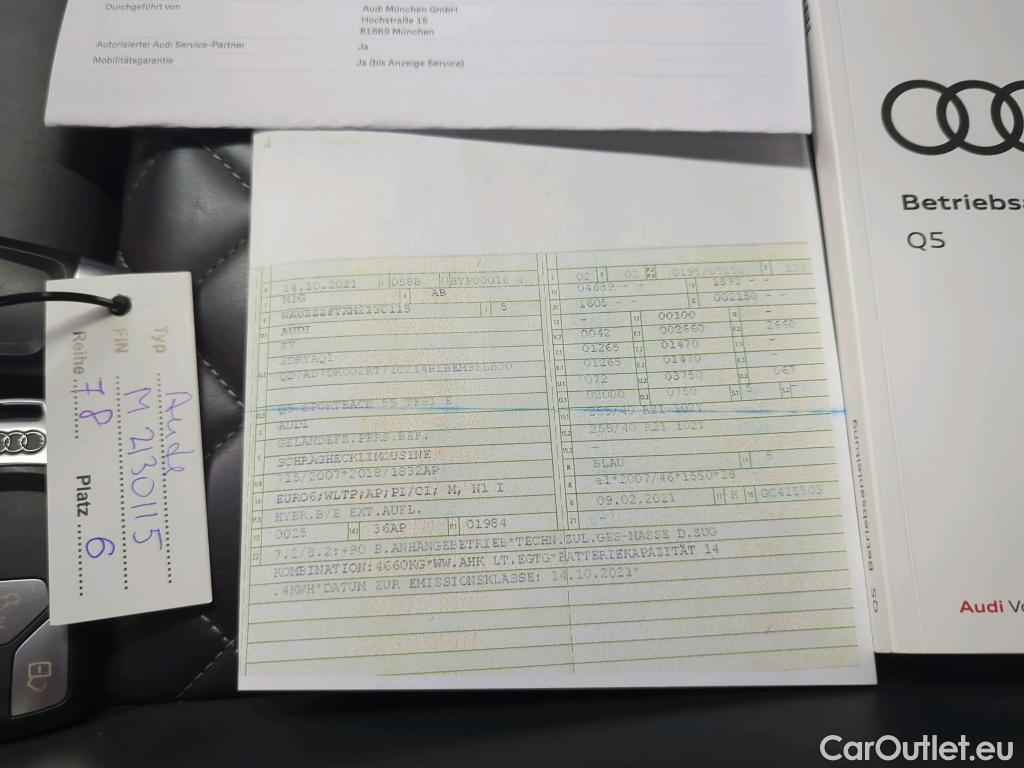 Durchgeführt von
Audi München GmbH
Hochstraße 15
81669 München
Autorisierter Audi Service-Partner
Ja
Mobilitätsgarantie
Ja (bis Anzeige Service)
Betriebsa
Q5
Audi Vo
Q5 Betriebsanleitung
Typ Audi
FIN M 2130115
Reihe 78 Platz 6
14.10.2021 0588
M1G AB
5
AUDI
FY
Q5 SPORTBACK 55 TFSI E
AUDI
GELÄNDEFZ.PERS.BEF.
SCHRÄGHECKLIMOUSINE
715/2007*2018/1832AP
EURO6;WLTP;AP;PI/CI; M, N1 I
HYBR.B/E EXT.AUFL.
0025 14.1 36AP P.1 01984
02 02
1605 - - 002150 - -
- 00100 -
0042 002660 2660
01265 01470
01265 01470
072 03750 067
02000 0750
255/40 R21 102Y
255/40 R21 102Y
BLAU 5
e1*2007/46*1550*28
09.02.2021 17 K 16 GC415503
22 7.2/8.2:+90 B.ANHÄNGEBETRIEB*TECHN.ZUL.GES-MASSE D.ZUG
KOMBINATION:4660KG*WW.AHK LT.EGTG*BATTERIEKAPAZITÄT 14
.4KWH*DATUM ZUR EMISSIONSKLASSE: 14.10.2021*
CarOutlet.eu